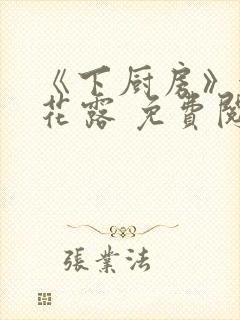 《下厨房》
花露 免費閱
張業法